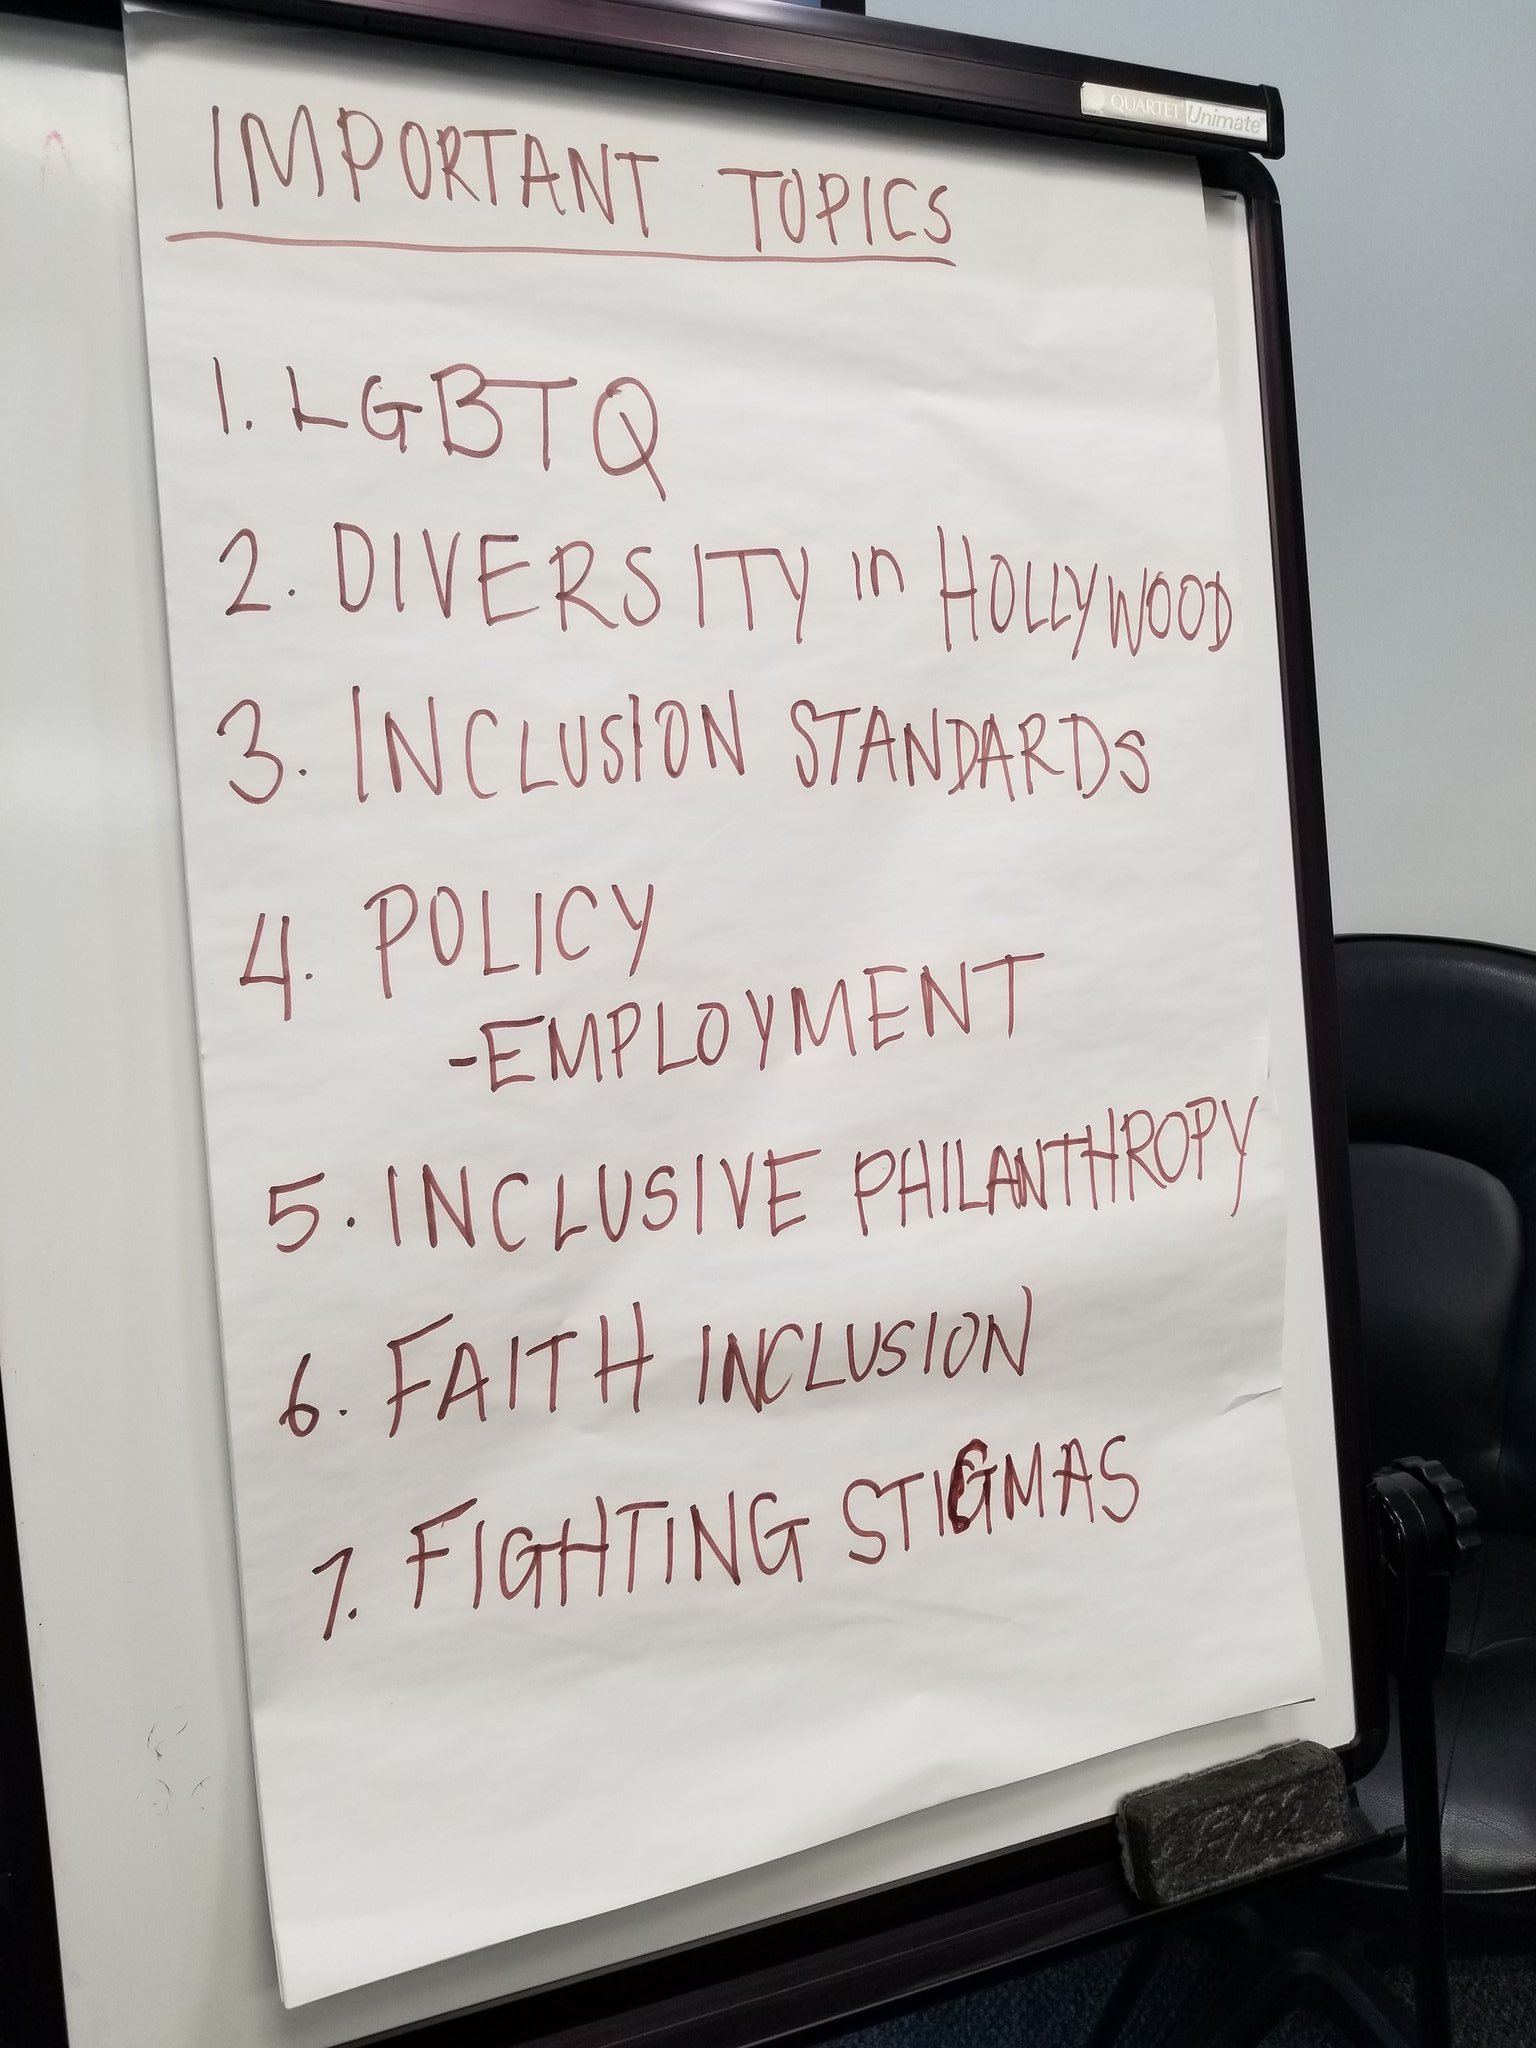 QUARTET Unimate
IMPORTANT TOPICS
1. LGBTQ
2. DIVERSITY in HOLLYWOOD
3. INCLUSION STANDARDS
4. POLICY
-EMPLOYMENT
5. INCLUSIVE PHILANTHROPY
6. FAITH INCLUSION
7. FIGHTING STIGMAS